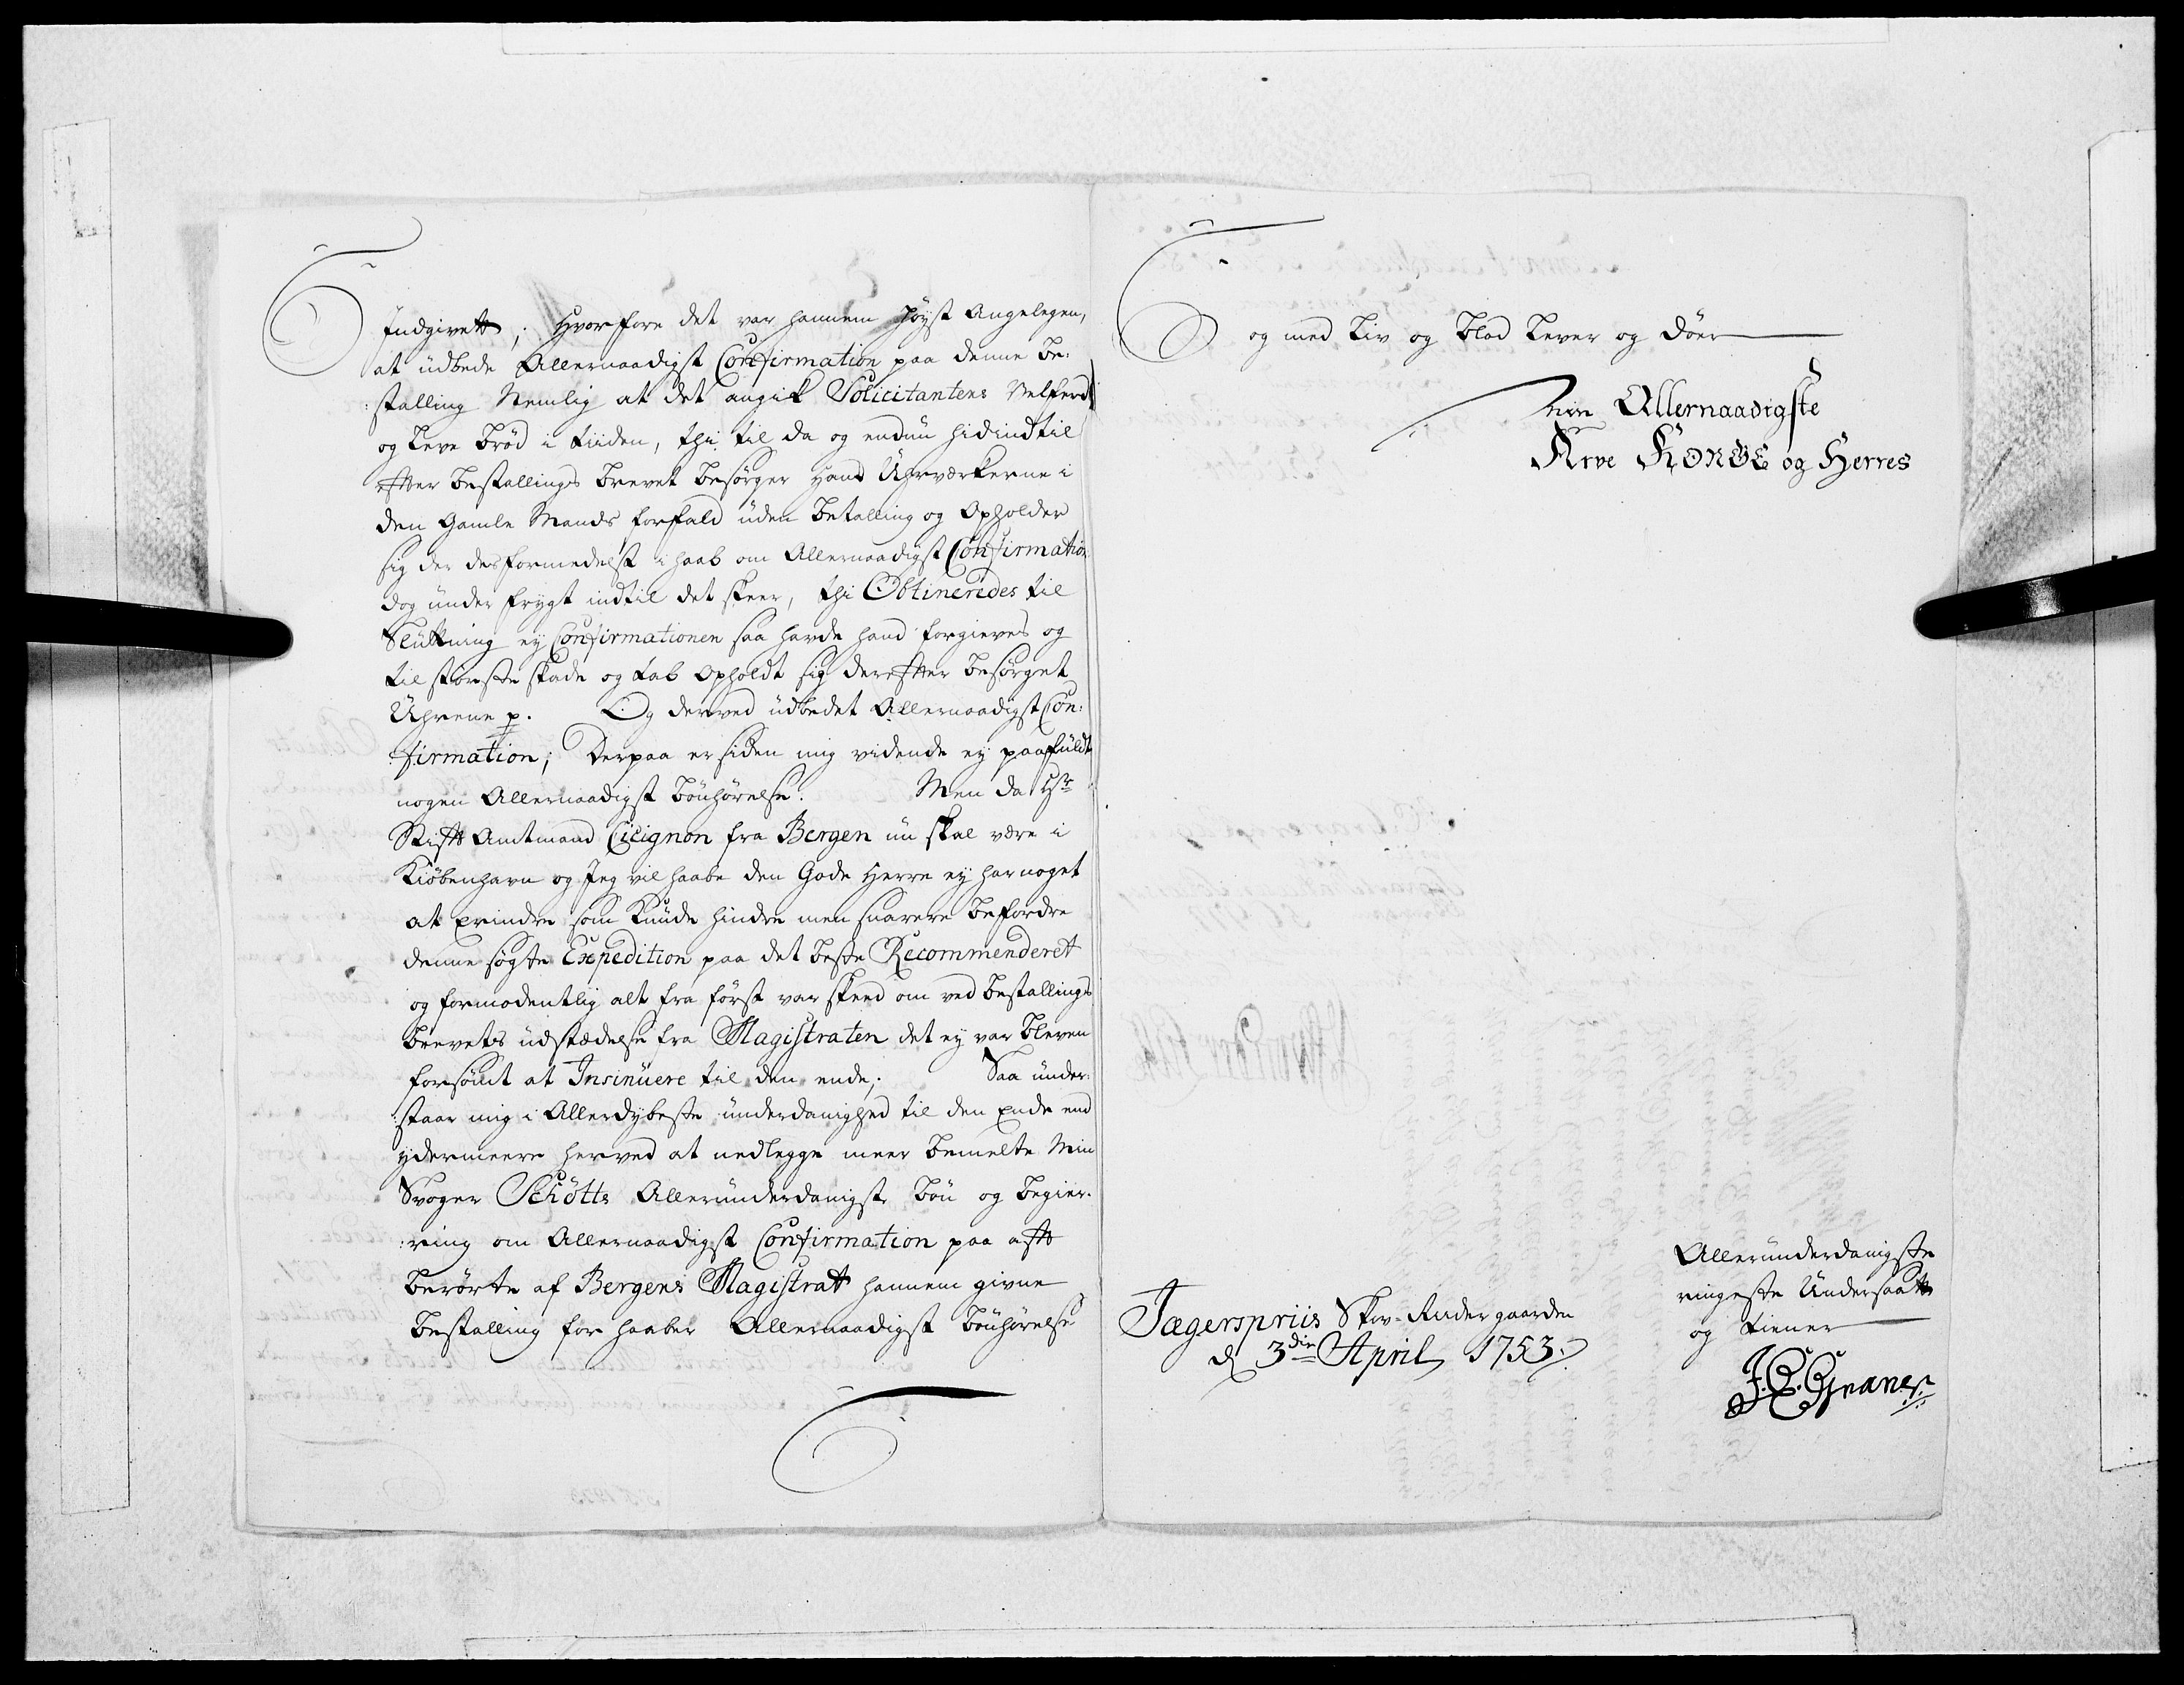 Indgivett; Hvorfore det var hannem høyst Angelegen,
at udbede Allernaadigst Confirmation paa denne be:
:stalling Nemlig at det angik Solicitantens Velferd
og leve brød i tiiden, thi til da og endnu hidindtil
efter bestallings brevet besørger hand Uhrværkerne i
den Gamle Mands forfald uden betalling og Opholder
sig der desformedelst i haab om Allernaadigst Confirmation
dog under frygt indtil det skeer, thi Obtineredes til
Slutning ey Confirmationen saa havde hand forgieves og
til største skade og tab opholdt sig derefter besørget
Uhrene p. Og derved udbedet Allernaadigst Con:
:firmation; Derpaa er siden mig vidende ey paafuldt
nogen Allernaadigst bønhørelse. Men da Hr
Stift Amtmand Cicignon fra Bergen nu skal være i
Kiøbenhavn og Jeg vil haabe den Gode Herre ey har noget
at erindre som kunde hindre men snarere befordre
denne søgte Expedition paa det beste Recommenderet
og formodentlig alt fra først var skeed om ved bestallings
brevets udstædelse fra Magistraten det ey var bleven
forsømt at Insinuere til den ende; Saa under:
:staar mig i Allerdybeste underdanighed til den ende end
ydermeere herved at nedlegge meer bemelte Min
Svoger Schøtts Allerunderdanigste bøn og begier:
:ring om Allernaadigst Confirmation paa oft
berørte af Bergens Magistrat hannem givne
bestalling for haaber Allernaadigst bønhørelse
og med Liv og Blod Lever og Døer
Min Allernaadigste
Arve Konges og Herres
Allerunderdanigste
ringeste Undersaatt
og tiener
Jægerspriis Skov-Riider gaarden
d 3die April 1753.